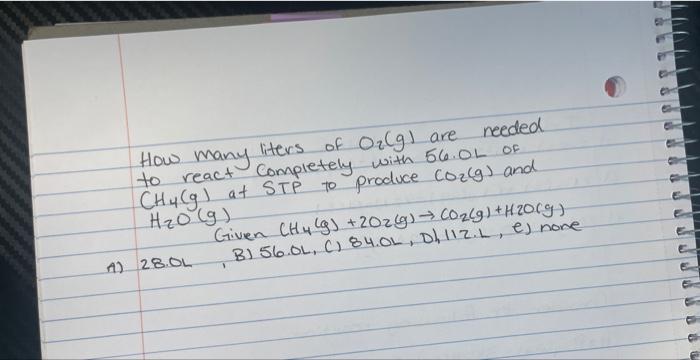 How many liters of O₂(g) are needed
to react completely with 56.0L of
CH₄(g) at STP to produce CO₂(g) and
H₂O(g)
Given CH₄(g) + 2O₂(g) → CO₂(g) + H2O(g)
A) 28.0L , B) 56.0L, C) 84.0L, D) 112.L, e) none